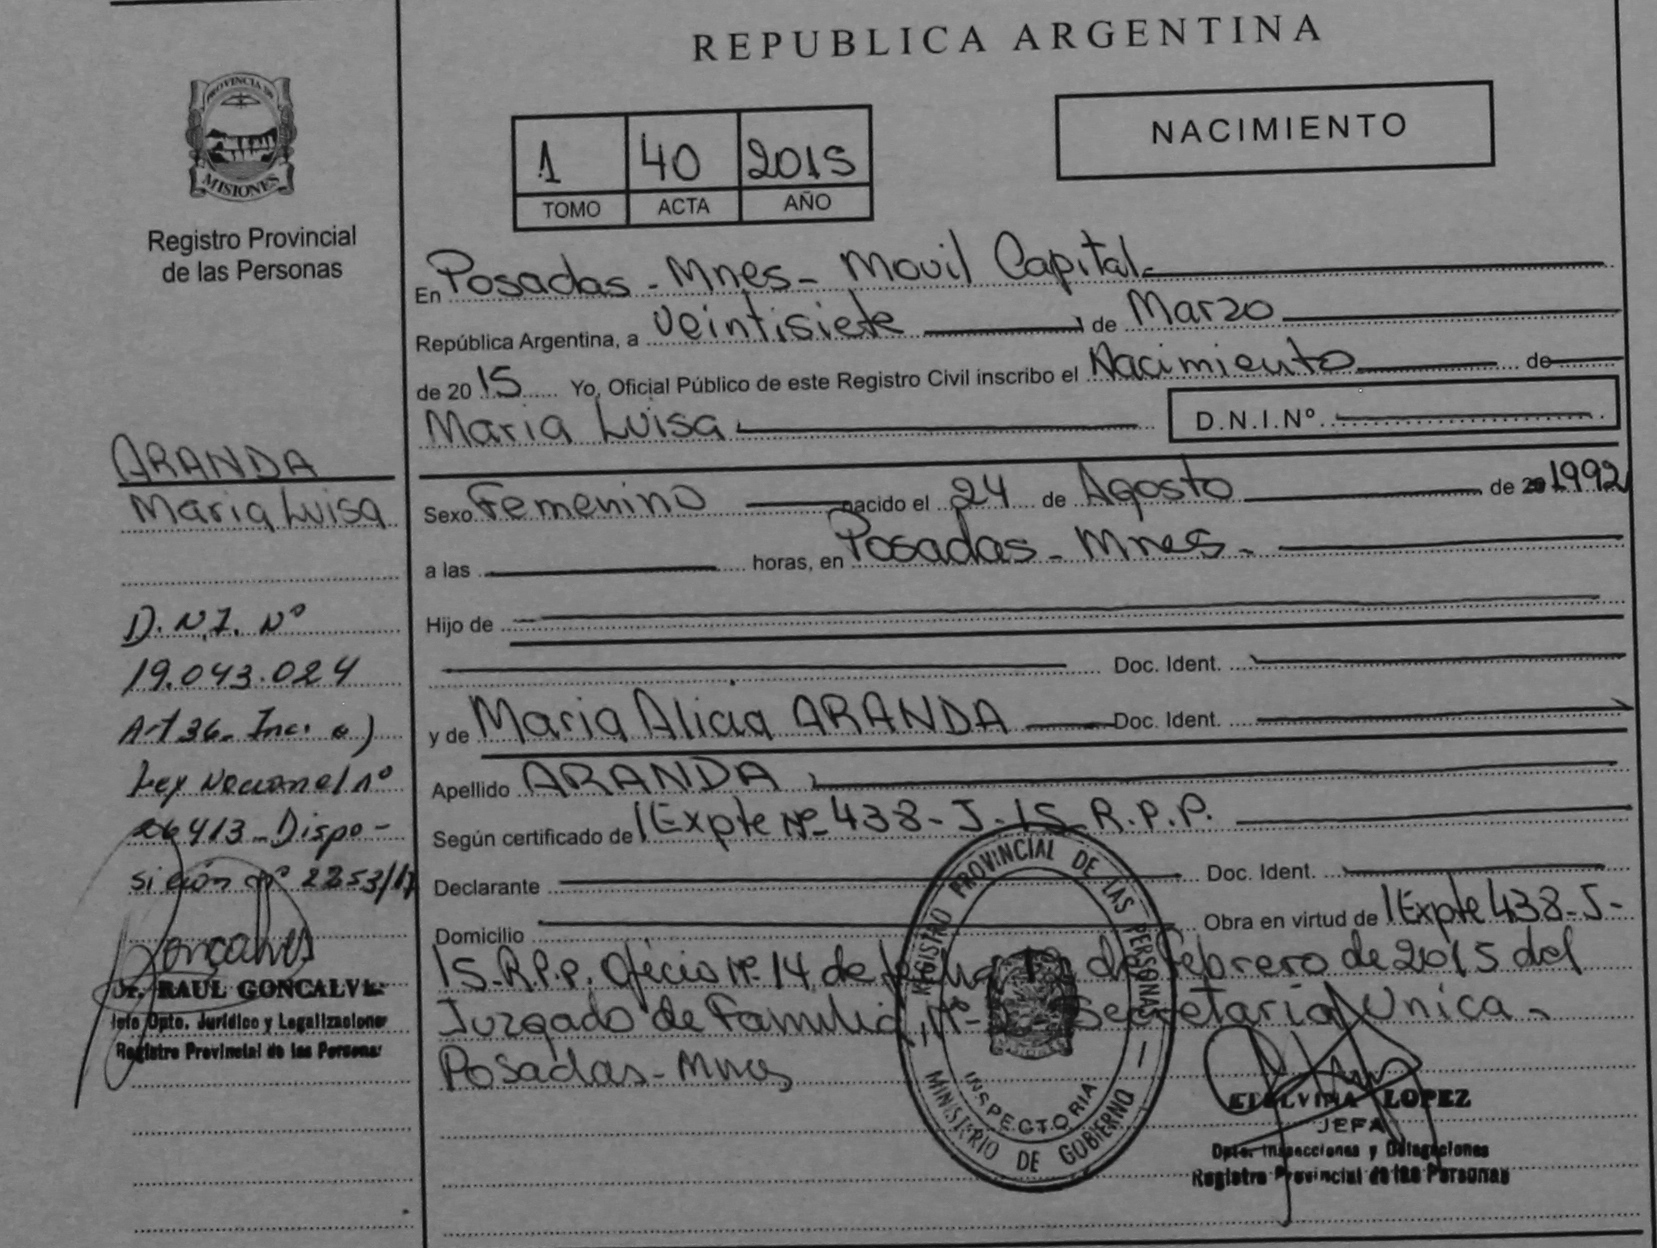 REPUBLICA ARGENTINA
PROVINCIA DE
MISIONES
Registro Provincial
de las Personas
NACIMIENTO
1 40 2015
TOMO ACTA AÑO
En Posadas - Mnes - Movil Capital
República Argentina, a veintisiete de Marzo
de 2015 Yo, Oficial Público de este Registro Civil inscribo el Nacimiento de
Maria Luisa D.N.I. Nº
Sexo Femenino nacido el 24 de Agosto de 20 1992
a las horas, en Posadas - Mnes -
Hijo de
Doc. Ident.
y de Maria Alicia ARANDA Doc. Ident.
Apellido ARANDA
Según certificado de Expte Nº 438 - J - 15 R.P.P.
Declarante Doc. Ident.
Domicilio Obra en virtud de Expte 438 - J -
15 - R.P.P. Oficio Nº 14 de fecha de Febrero de 2015 del
Juzgado de Familia Nº Secretaria Unica -
Posadas - Mnes
ARANDA
Maria Luisa
D.N.I. Nº
19.043.024
Art 36 - Inc. a)
Ley Nacional nº
26413 - Dispo -
sición nº 2253/17
Goncalves
Dr. RAUL GONCALVES
Jefe Dpto. Jurídico y Legalizaciones
Registro Provincial de las Personas
REGISTRO PROVINCIAL DE LAS PERSONAS
INSPECTORIA
MINISTERIO DE GOBIERNO
ETELVINA LOPEZ
JEFA
Dpto. Inspecciones y Delegaciones
Registro Provincial de las Personas